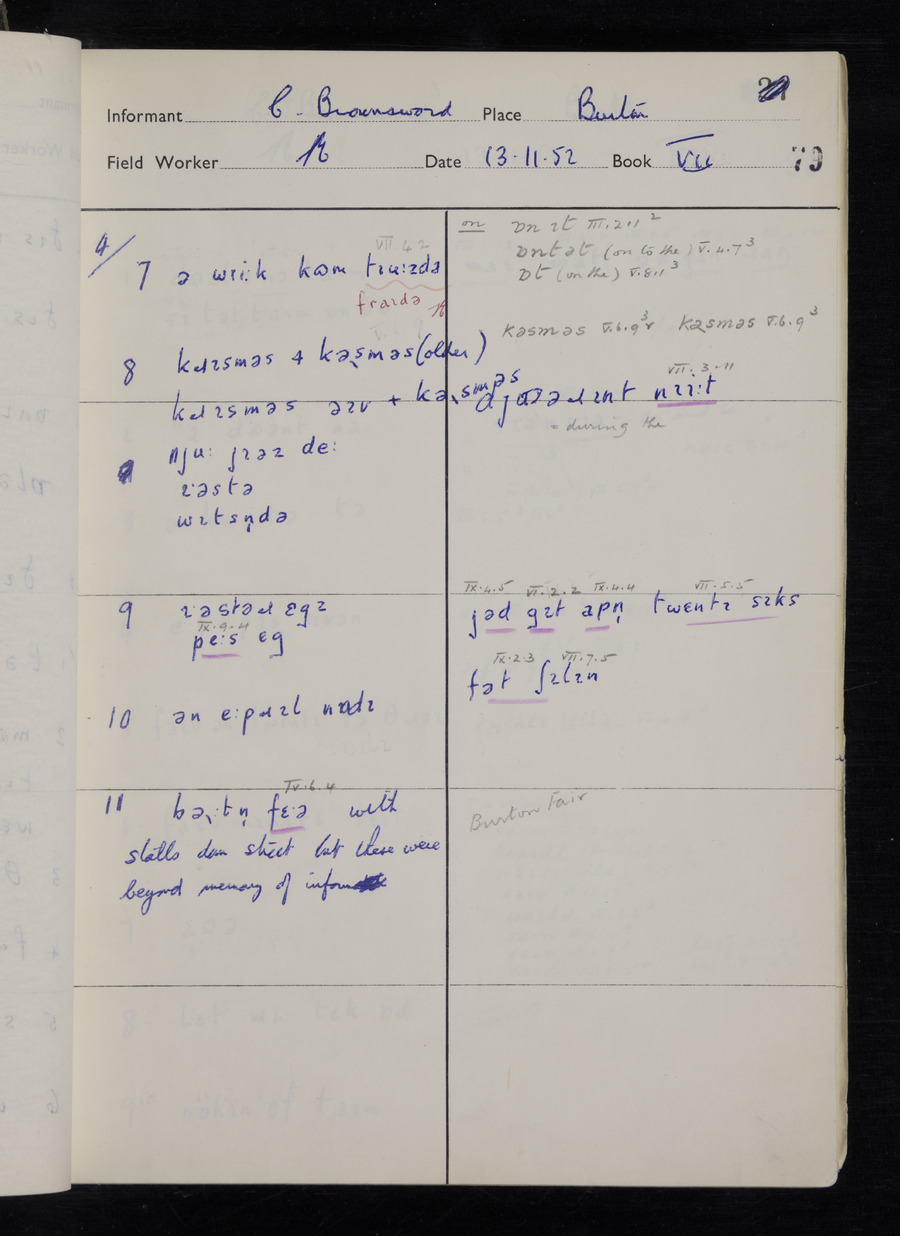 Informant C. Brownsword Place Burton
Field Worker Date 13.11.52 Book VII 79
4/
VII 4 2
7 ə wɪi:k kʊm
fraɪdə
8 kɹɪsməs + kə̢sməs (older)
kɹɪsməs ɪːv + kə̢sməs
nju: jɪəz de:
ɪəstə
wɪtsn̩də
9 ɪəstəɹ ɛgz
IX.9.4
pe:s ɛg
10 ən e:pɹɪl nɒdɪ
IV.6.4
11 bə̢:tn̩ fɛ:ə with
stalls down street but these were
beyond memory of
on ɒn ɪt III.2.11 2
ɒntət (on to the) V.4.7 3
ɒt (on the) V.8.1 3
kəsməs V.6.9 3 kəsməs V.6.9 3
VII.3.11
nɪi:t
= during the
IX.4.5 VI.2.2 IX.4.4 VII.5.5
jəd gɪt apn̩ twentɪ sɪks
IX.2.3 VII.7.5
fət ʃɪlɪn
Burton Fair